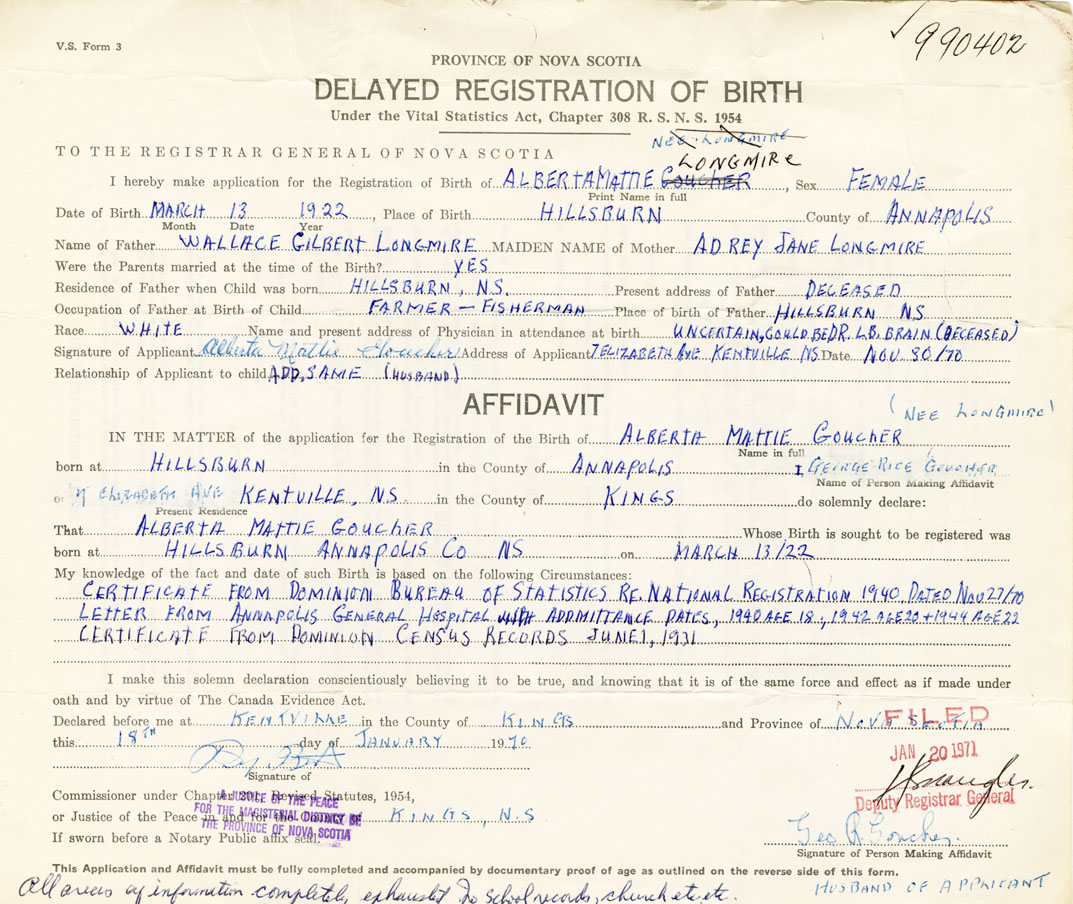 V.S. Form 3
✓ 990402
PROVINCE OF NOVA SCOTIA
DELAYED REGISTRATION OF BIRTH
Under the Vital Statistics Act, Chapter 308 R. S. N. S. 1954
NEE LONGMIRE
TO THE REGISTRAR GENERAL OF NOVA SCOTIA
LONGMIRE
I hereby make application for the Registration of Birth of ALBERTA MATTIE GOUCHER, Sex FEMALE
Print Name in full
Date of Birth MARCH 13 1922, Place of Birth HILLSBURN County of ANNAPOLIS
Month Date Year
Name of Father WALLACE GILBERT LONGMIRE MAIDEN NAME of Mother ADREY JANE LONGMIRE
Were the Parents married at the time of the Birth? YES
Residence of Father when Child was born HILLSBURN, N.S. Present address of Father DECEASED
Occupation of Father at Birth of Child FARMER — FISHERMAN Place of birth of Father HILLSBURN NS
Race WHITE Name and present address of Physician in attendance at birth UNCERTAIN, COULD BE DR. L.B. BRAIN (DECEASED)
Signature of Applicant Alberta Mattie Goucher Address of Applicant 7 ELIZABETH AVE KENTVILLE NS. Date NOV 30/70
Relationship of Applicant to child ADD. SAME (HUSBAND)
AFFIDAVIT
(NEE LONGMIRE)
IN THE MATTER of the application for the Registration of the Birth of ALBERTA MATTIE GOUCHER
Name in full
born at HILLSBURN in the County of ANNAPOLIS I, GEORGE RICE GOUCHER
Name of Person Making Affidavit
of 7 ELIZABETH AVE KENTVILLE, NS in the County of KINGS do solemnly declare:
Present Residence
That ALBERTA MATTIE GOUCHER Whose Birth is sought to be registered was
born at HILLSBURN ANNAPOLIS CO NS on MARCH 13/22
My knowledge of the fact and date of such Birth is based on the following Circumstances:
CERTIFICATE FROM DOMINION BUREAU OF STATISTICS RE. NATIONAL REGISTRATION 1940 DATED NOV 27/70
LETTER FROM ANNAPOLIS GENERAL HOSPITAL WITH ADDMITTANCE DATES, 1940 AGE 18, 1942 AGE 20 + 1944 AGE 22
CERTIFICATE FROM DOMINION CENSUS RECORDS JUNE 1, 1931
I make this solemn declaration conscientiously believing it to be true, and knowing that it is of the same force and effect as if made under
oath and by virtue of The Canada Evidence Act.
Declared before me at KENTVILLE in the County of KINGS and Province of NOVA SCOTIA
FILED
this 18TH day of JANUARY 1970
JAN 20 1971
Signature of
Deputy Registrar General
Commissioner under Chapter 201, Revised Statutes, 1954,
A JUSTICE OF THE PEACE
FOR THE MAGISTERIAL DISTRICT OF
or Justice of the Peace in and for the County of KINGS, N.S
THE PROVINCE OF NOVA SCOTIA
If sworn before a Notary Public affix seal.
Geo R Goucher.
Signature of Person Making Affidavit
This Application and Affidavit must be fully completed and accompanied by documentary proof of age as outlined on the reverse side of this form.
HUSBAND OF APPLICANT
All areas of information completely exhausted. No school records, church etc. etc.